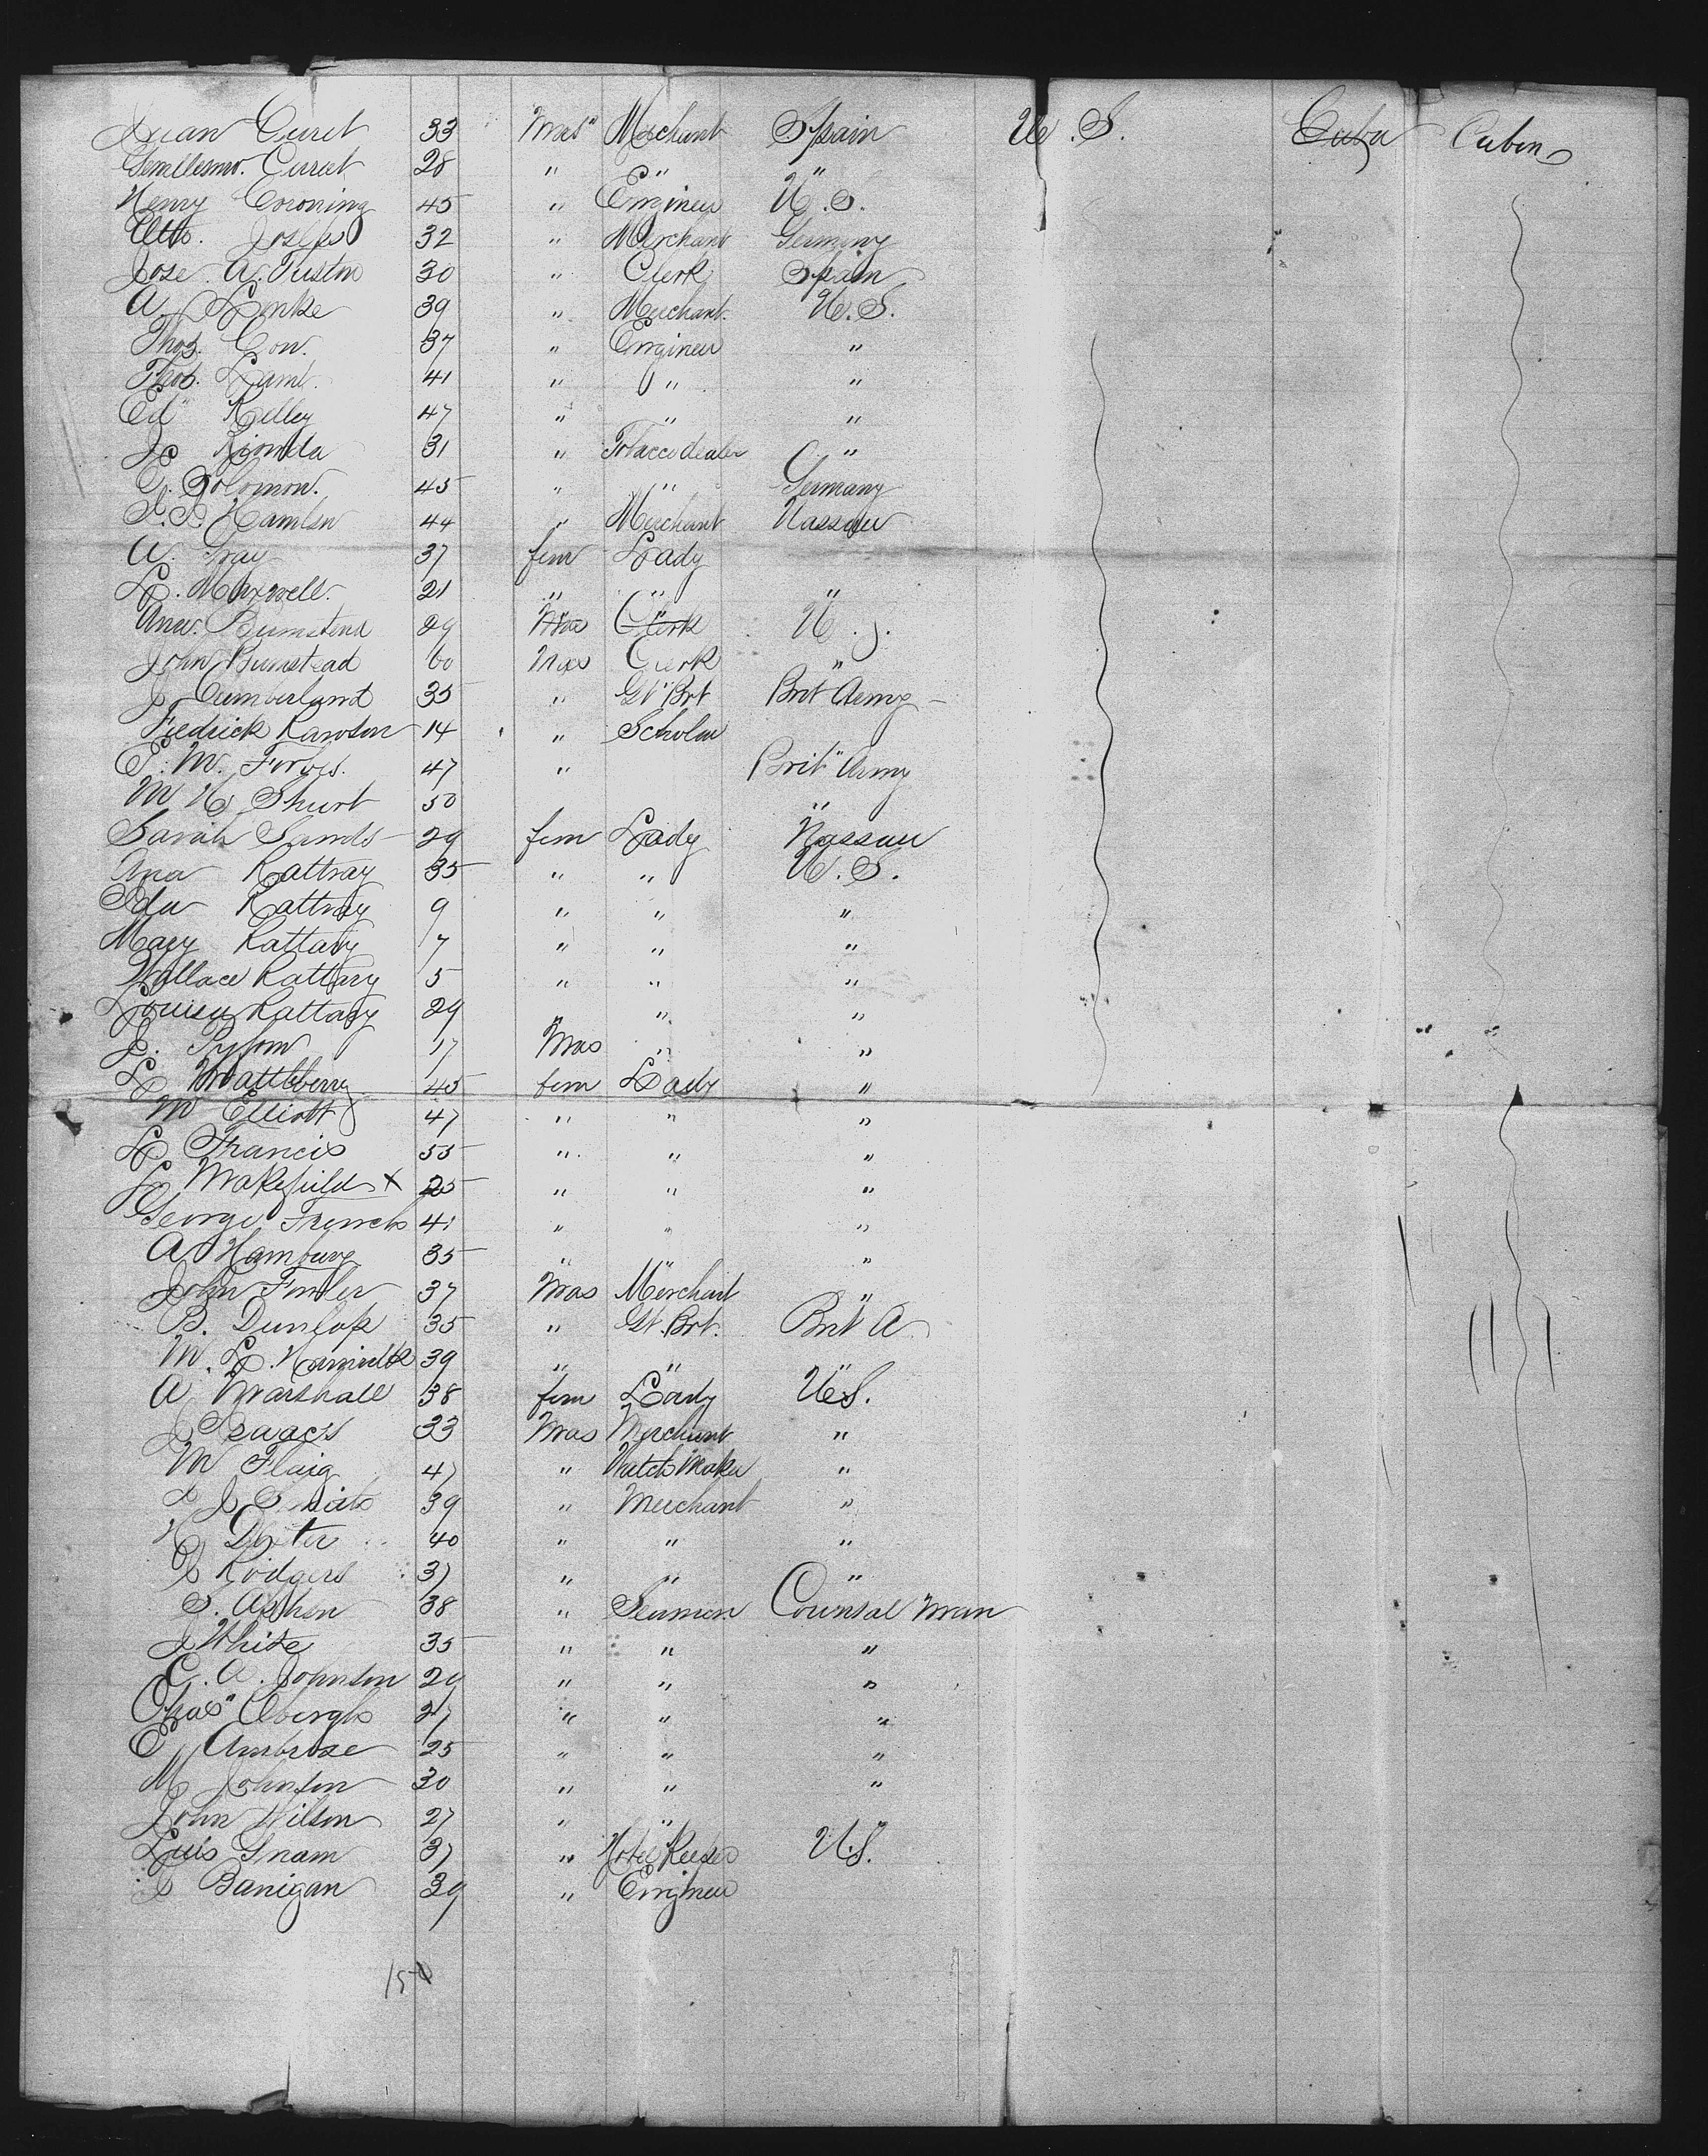 Juan Curet 33 Mas" Merchant Spain U. S. Cuba Cuban
Curret 28 " " "
Henry 45 " Engineer U. S.
Otto. Joseph 32 " Merchant Germany
Jose A. Fuston 30 " Clerk Spain
A. Linke 39 " Merchant. U. S.
Thos. Cow. 37 " Engineer "
Thos. Lamb. 41 " " "
Ed" Kelley 47 " " "
31 " Tobacco dealer "
E. Solomon. 45 " " Germany
Hamlin 44 " Merchant Nassau
A. Gray 37 fem Lady
L. Maxwell. 21 " " "
Ana. Bumstead 29 Mas Clerk U. S.
John Bumstead 60 Mas Clerk "
J Cumberland 35 " Gt" Brt Brit Army
Fredrick Rawson 14 " Scholar
E. M. Forbes. 47 " Brit" Army
M H Shurt 50 "
Sarah Sands 29 fem Lady Nassau
Ana Rattray 35 " " U. S.
Ida Rattray 9 " " "
Mary Rattary 7 " " "
Wallace Rattary 5 " " "
Louisa Rattary 29 " " "
17 Mas " "
L Mattleberry 45 fem Lady "
M Elliott 47 " " "
L Francis 55 " " "
L Makefield x 25 " " "
George French 41 " " "
A Hamburg 35 " " "
John Fowler 37 Mas Merchant "
B. Dunlop 35 " Gt. Brt. Brit A.
M. L. 39 " " "
A Marshall 38 fem Lady U S.
J Isaacs 33 Mas Merchant "
M Flaig 47 " Watch Maker "
39 " Merchant "
H Dexter 40 " " "
J Rodgers 37 " " "
S. 38 " Seamen Counsal Man
J White 35 " " "
C. A. Johnson 29 " " "
Chas" Obergh 27 " " "
E Ambrose 25 " " "
M Johnson 30 " " "
John Wilson 27 " " "
Luis Gnam 37 " Hotel Keeper U.S.
J Banigan 39 " Engineer